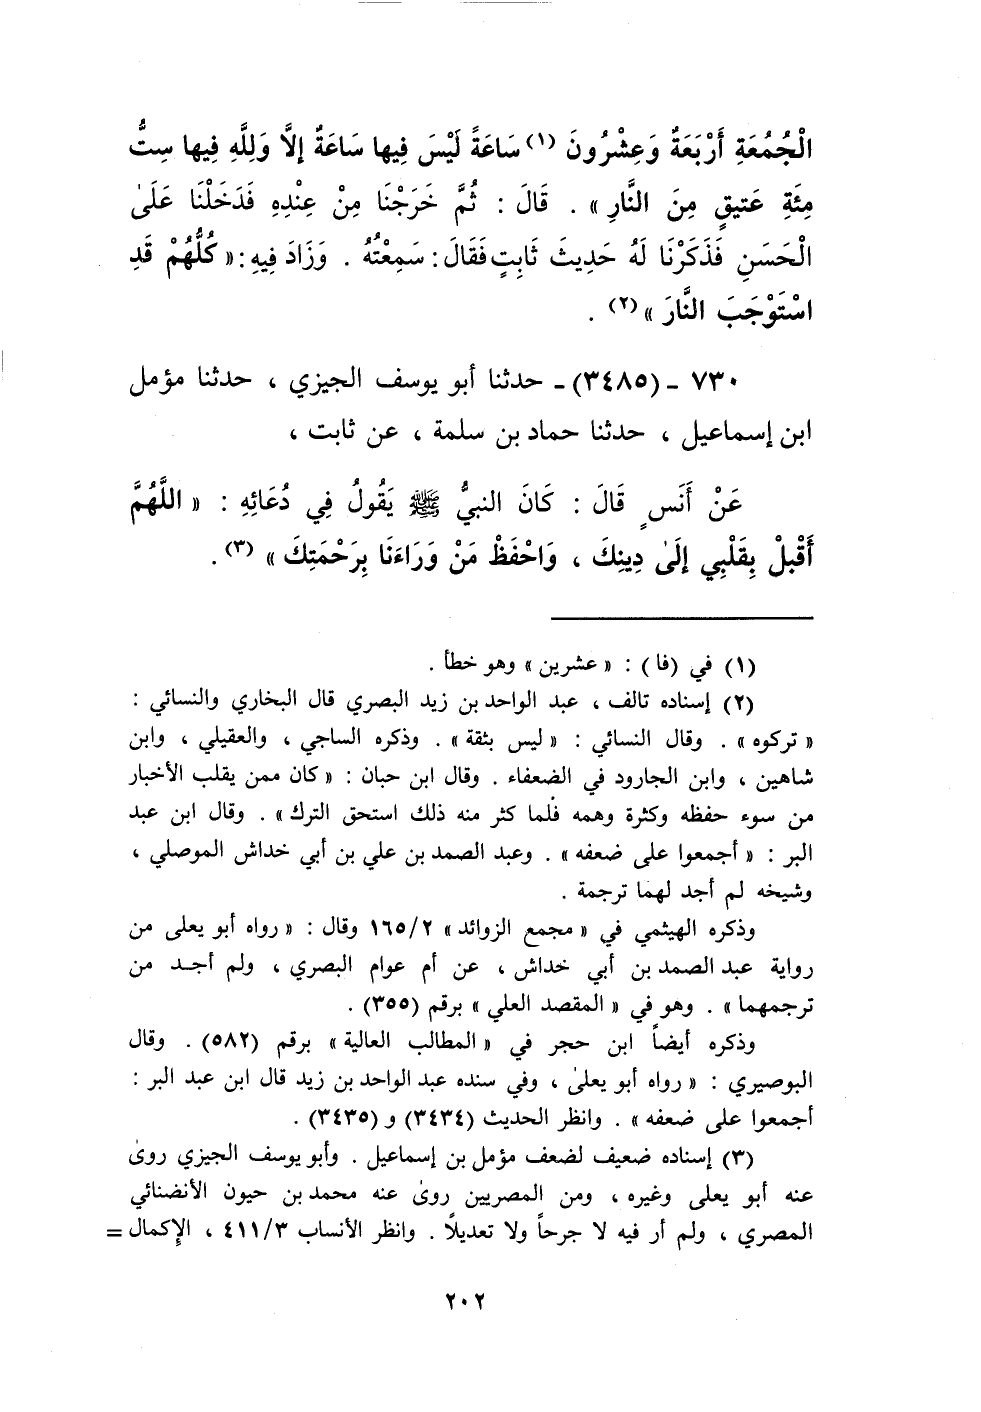 الْجُمُعَةِ أَرْبَعَةٌ وَعِشْرُونَ (١) سَاعَةً لَيْسَ فِيها سَاعَةٌ إلَّا وَلِلَّهِ فِيها سِتُّ
مِئَةِ عَتيقٍ مِنَ النَّارِ » . قَالَ : ثُمَّ خَرَجْنَا مِنْ عِنْدِهِ فَدَخَلْنَا عَلَىٰ
الْحَسَنِ فَذَكَرْنَا لَهُ حَدِيثَ ثَابِتٍ فَقَالَ : سَمِعْتُهُ . وَزَادَ فِيهِ : « كُلُّهُمْ قَدِ
اسْتَوْجَبَ النَّارَ » (٢) .
٧٣٠ ـ (٣٤٨٥) ـ حدثنا أبو يوسف الجيزي ، حدثنا مؤمل
ابن إسماعيل ، حدثنا حماد بن سلمة ، عن ثابت ،
عَنْ أَنَسٍ قَالَ : كَانَ النبيُّ ﷺ يَقُولُ فِي دُعَائِهِ : « اللَّهُمَّ
أَقْبِلْ بِقَلْبِي إلَىٰ دِينِكَ ، وَاحْفَظْ مَنْ وَرَاءَنَا بِرَحْمَتِكَ » (٣) .
(١) في (فا) : « عشرين » وهو خطأ .
(٢) إسناده تالف ، عبد الواحد بن زيد البصري قال البخاري والنسائي :
« تركوه » . وقال النسائي : « ليس بثقة » . وذكره الساجي ، والعقيلي ، وابن
شاهين ، وابن الجارود في الضعفاء . وقال ابن حبان : « كان ممن يقلب الأخبار
من سوء حفظه وكثرة وهمه فلما كثر منه ذلك استحق الترك » . وقال ابن عبد
البر : « أجمعوا على ضعفه » . وعبد الصمد بن علي بن أبي خداش الموصلي ،
وشيخه لم أجد لهما ترجمة .
وذكره الهيثمي في « مجمع الزوائد » ١٦٥/٢ وقال : « رواه أبو يعلى من
رواية عبد الصمد بن أبي خداش ، عن أم عوام البصري ، ولم أجد من
ترجمهما » . وهو في « المقصد العلي » برقم (٣٥٥) .
وذكره أيضاً ابن حجر في « المطالب العالية » برقم (٥٨٢) . وقال
البوصيري : « رواه أبو يعلىٰ ، وفي سنده عبد الواحد بن زيد قال ابن عبد البر :
أجمعوا على ضعفه » . وانظر الحديث (٣٤٣٤) و (٣٤٣٥) .
(٣) إسناده ضعيف لضعف مؤمل بن إسماعيل . وأبو يوسف الجيزي روىٰ
عنه أبو يعلى وغيره ، ومن المصريين روىٰ عنه محمد بن حيون الأنضنائي
المصري ، ولم أر فيه لا جرحاً ولا تعديلاً . وانظر الأنساب ٤١١/٣ ، الإكمال =
٢٠٢